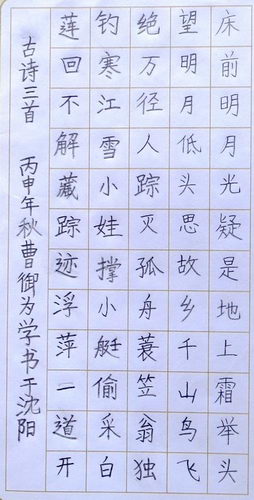 床前明月光疑是地上霜举头
望明月低头思故乡千山鸟飞
绝万径人踪灭孤舟蓑笠翁独
钓寒江雪小娃撑小艇偷采白
莲回不解藏踪迹浮萍一道开
古诗三首 丙申年秋曹御为学书于沈阳